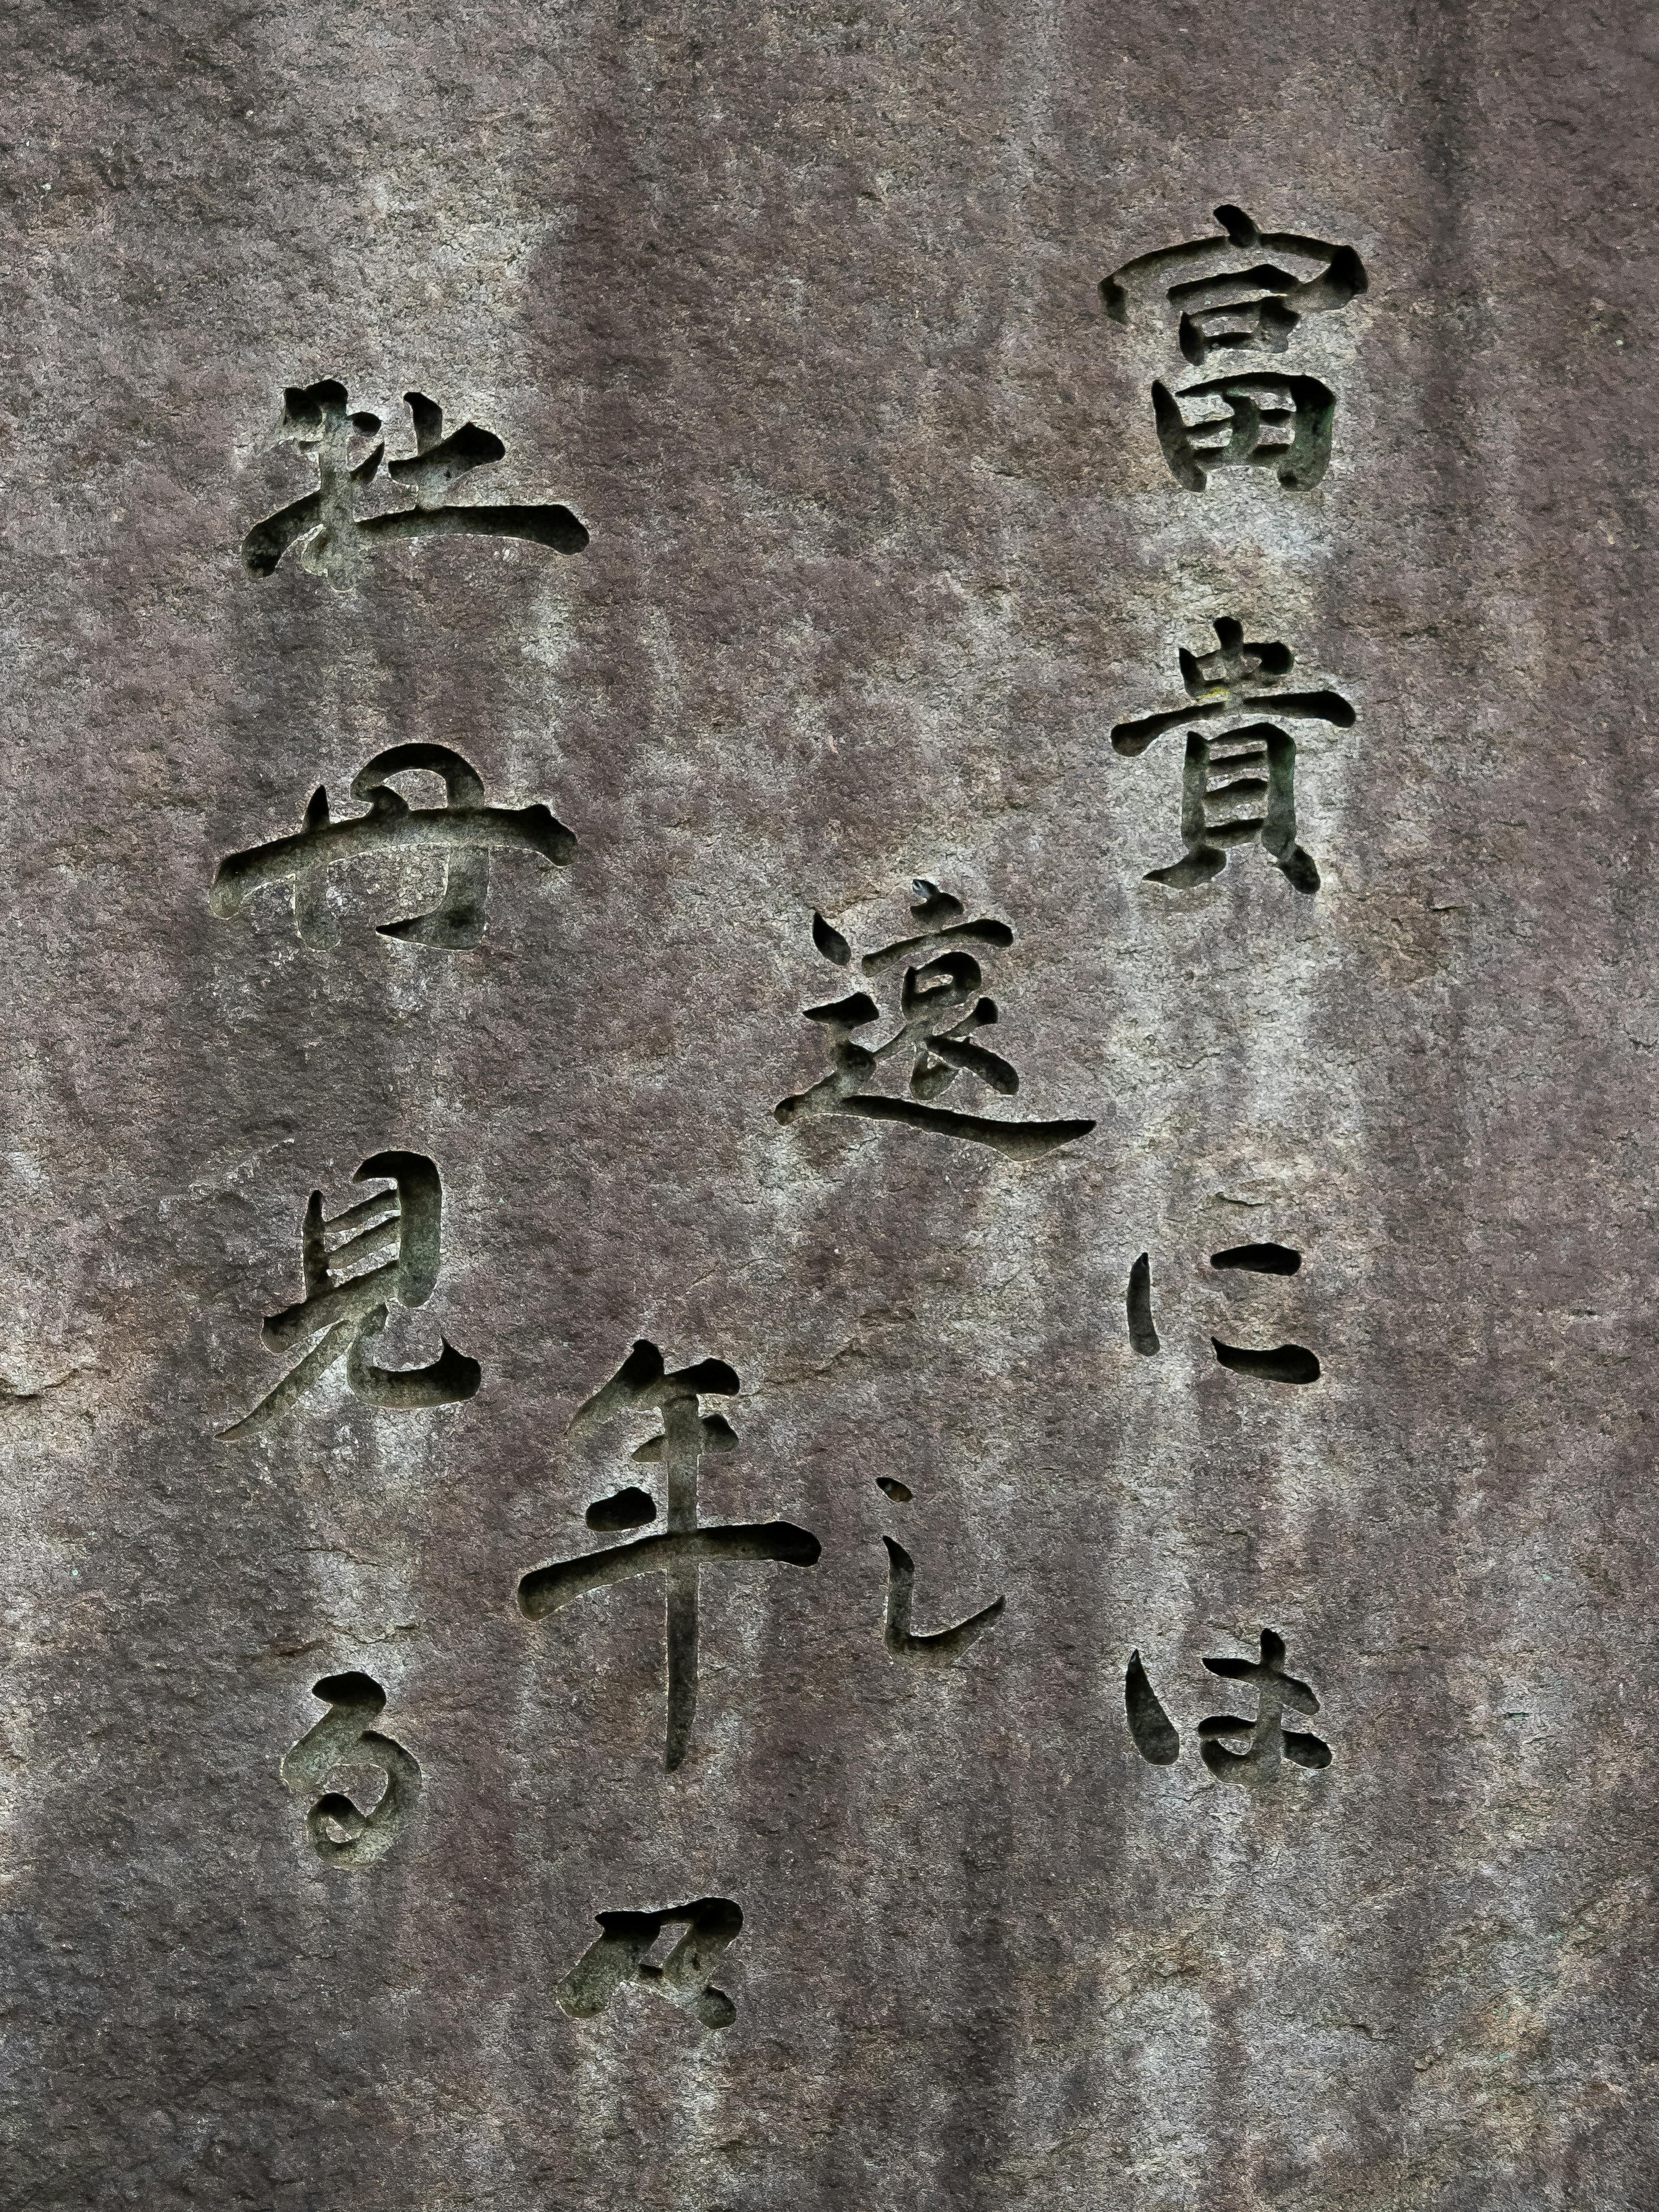 富貴には
遠し
年々
牡丹見る